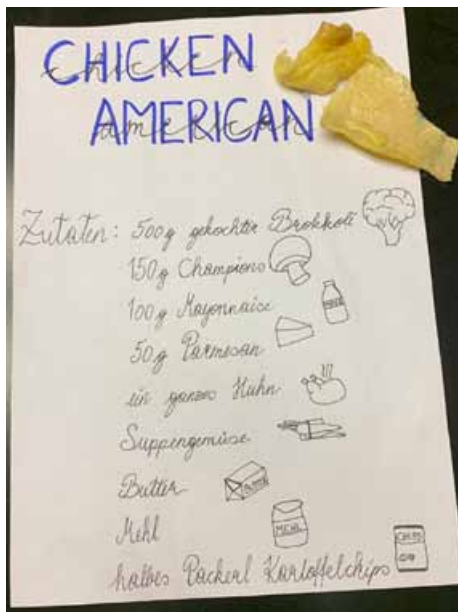 CHICKEN
AMERICAN
Zutaten: 500g gekochter Brokkoli
150g Champions
100g Mayonnaise
50g Parmesan
ein ganzes Huhn
Suppengemüse
Butter
Mehl
MEHL
halbes Packerl Kartoffelchips